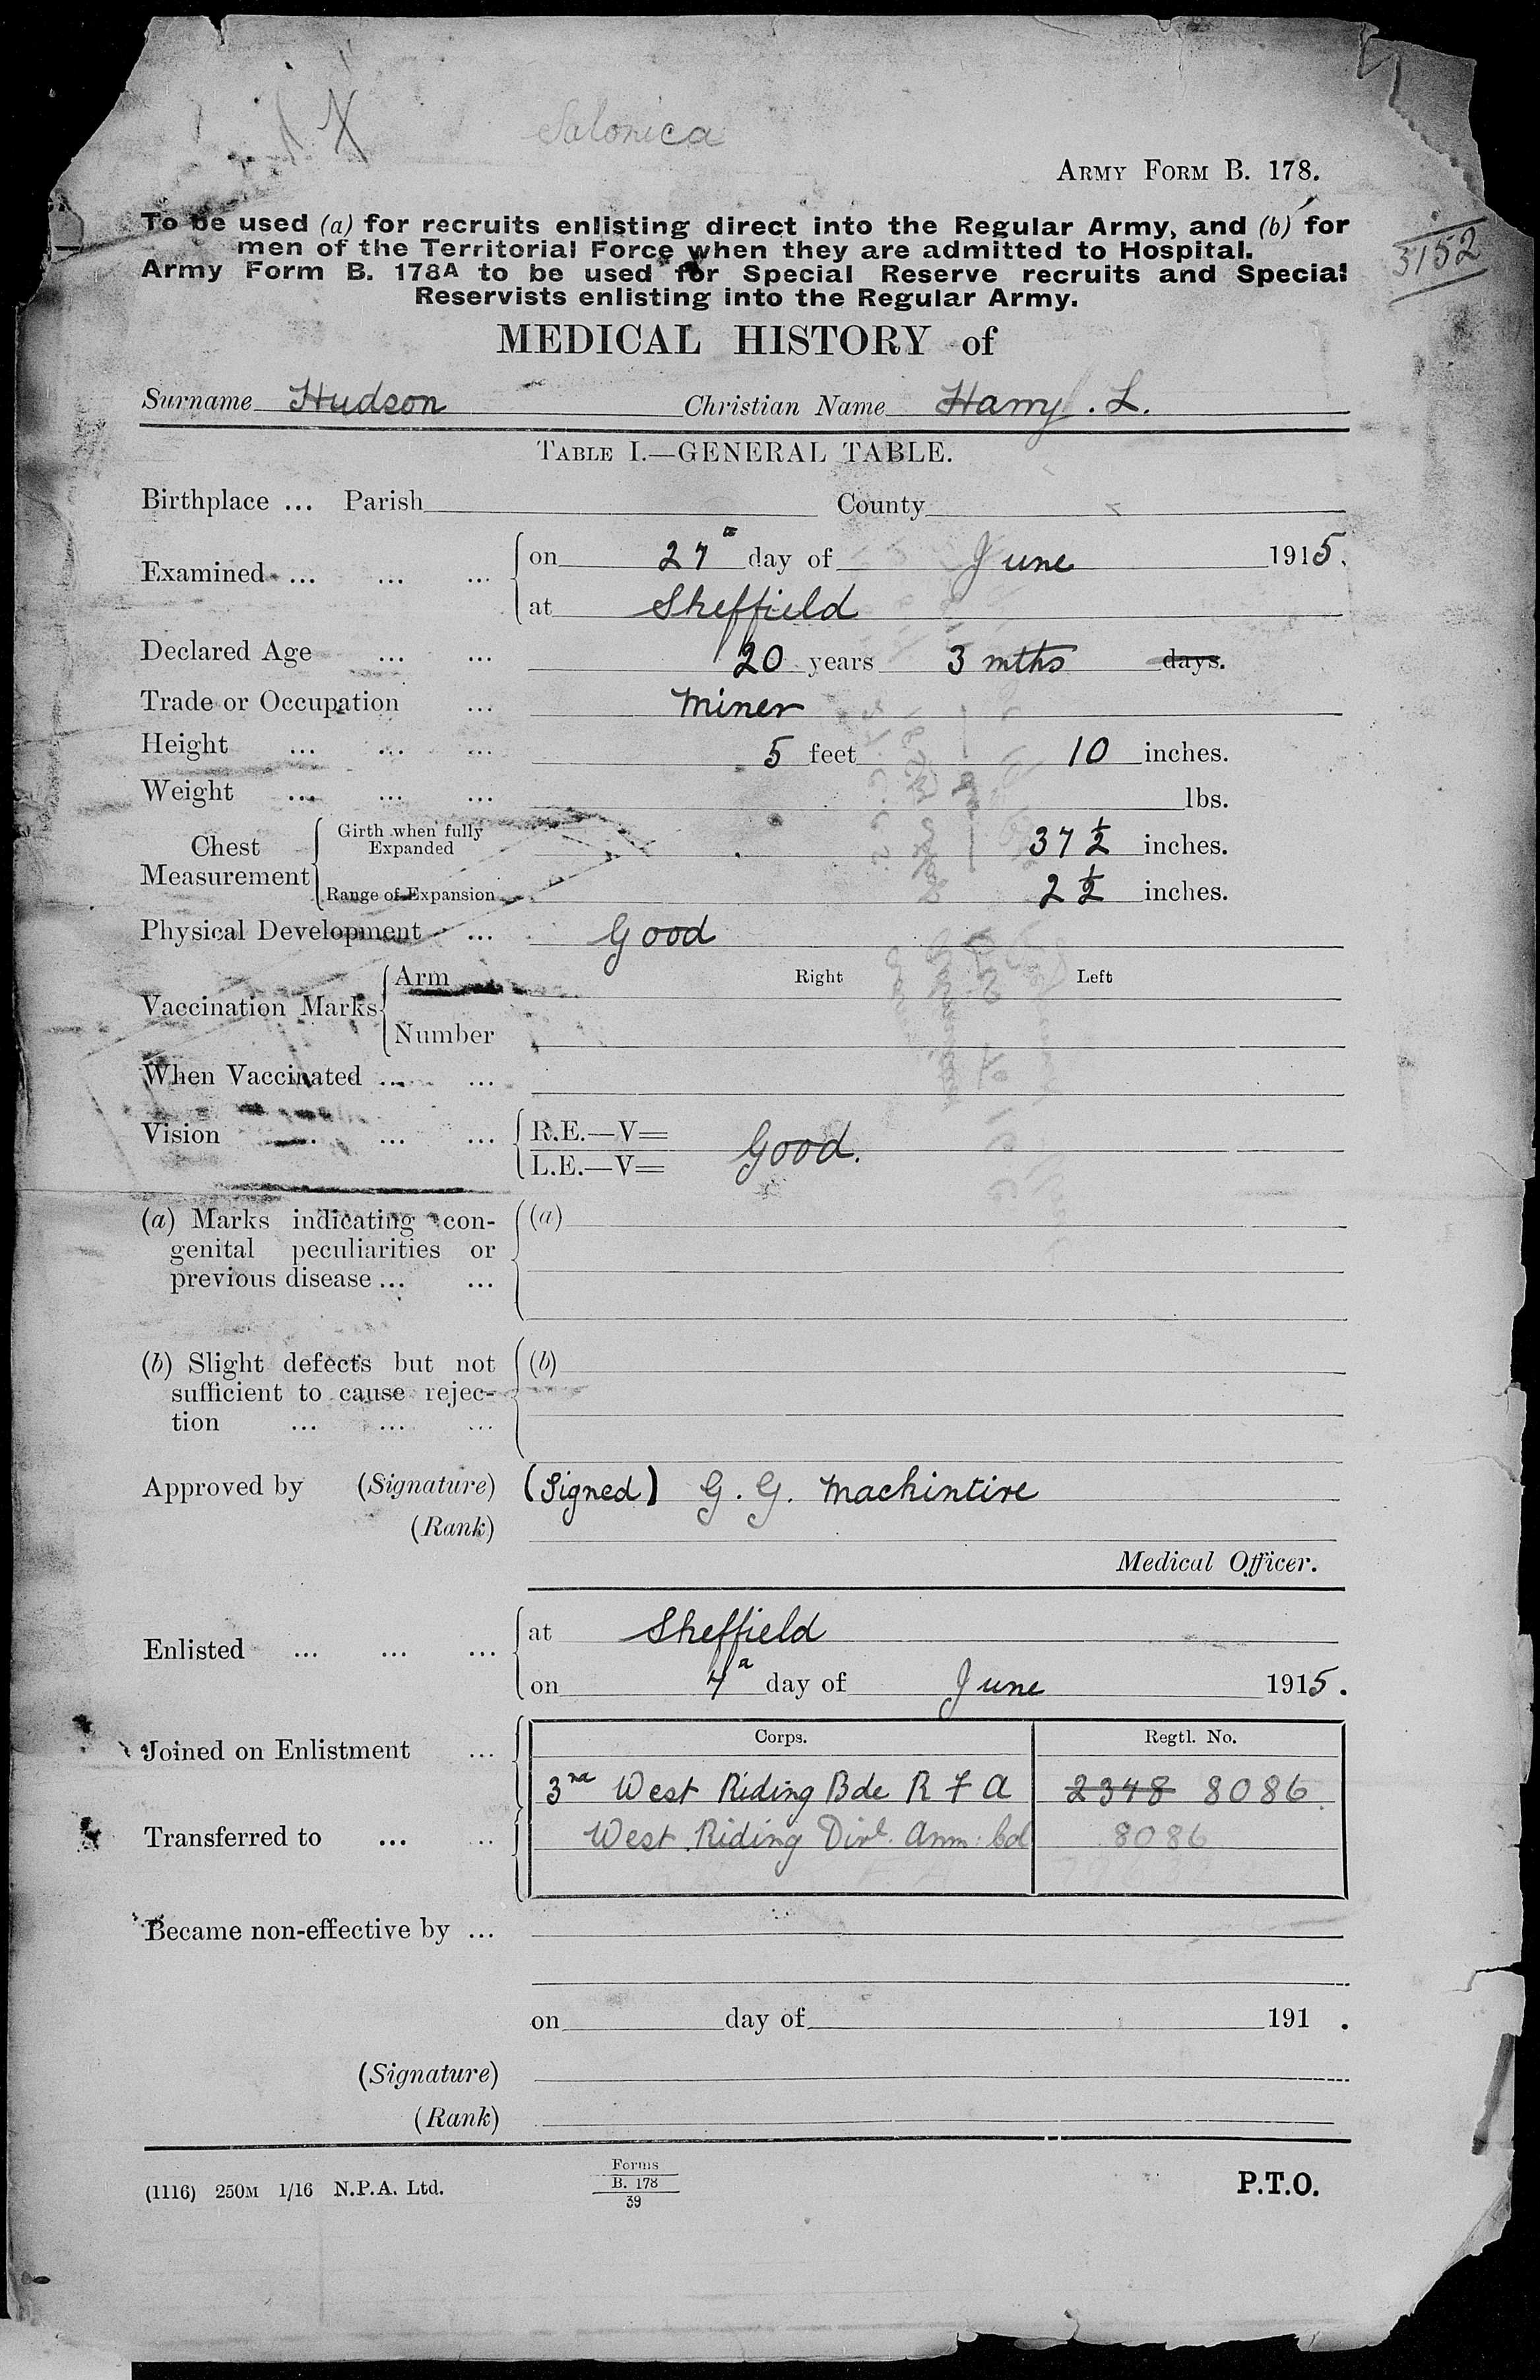 Salonica
ARMY FORM B. 178.
3152
To be used (a) for recruits enlisting direct into the Regular Army, and (b) for
men of the Territorial Force when they are admitted to Hospital.
Army Form B. 178A to be used for Special Reserve recruits and Special
Reservists enlisting into the Regular Army.
MEDICAL HISTORY of
Surname Hudson Christian Name Harry . L.
TABLE I.—GENERAL TABLE.
Birthplace ... Parish County
Examined ... ... ... on 27th day of June 1915.
at Sheffield
Declared Age ... ... 20 years 3 mths days.
Trade or Occupation ... Miner
Height ... ... ... 5 feet 10 inches.
Weight ... ... ... lbs.
Chest Measurement Girth when fully Expanded 37 ½ inches.
Range of Expansion 2 ½ inches.
Physical Development ... Good
Vaccination Marks Arm Right Left
Number
When Vaccinated ... ...
Vision ... ... ... R.E.—V=
L.E.—V= Good.
(a) Marks indicating con- (a)
genital peculiarities or
previous disease ... ...
(b) Slight defects but not (b)
sufficient to cause rejec-
tion ... ... ...
Approved by (Signature) (Signed) G. G. Machintire
(Rank)
Medical Officer.
Enlisted ... ... ... at Sheffield
on 7th day of June 1915.
Corps. Regtl. No.
Joined on Enlistment ... 3rd West Riding Bde R F A 2348 8086
Transferred to ... ... West Riding Divl. Amm: Col 8086
Became non-effective by ...
on day of 191 .
(Signature)
(Rank)
(1116) 250M 1/16 N.P.A. Ltd. Forms
B. 178
39
P.T.O.